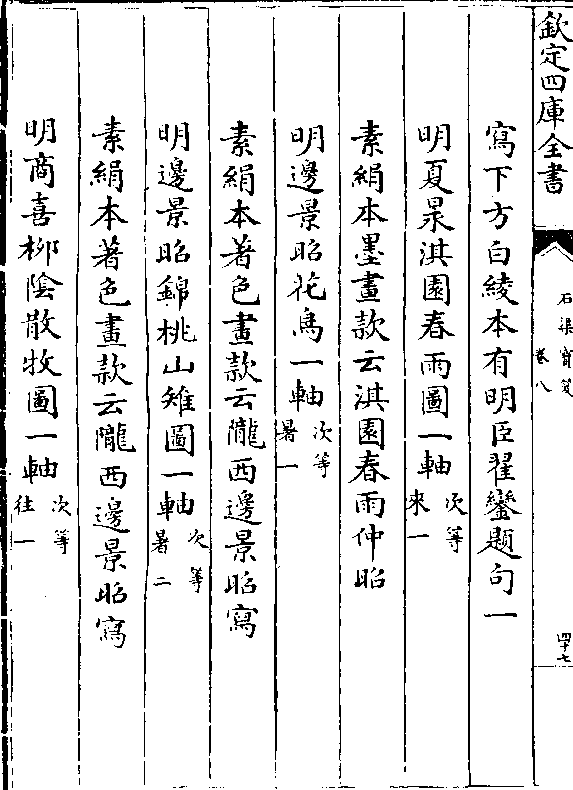 欽定四庫全書
石渠寳笈
卷八
四十七
寫下方白綾本有明臣翟鑾題句一
明夏㫤淇園春雨圖一軸次等來一
素絹本墨畫款云淇園春雨仲昭
明邊景昭花鳥一軸次等暑一
素絹本著色畫款云隴西邊景昭寫
明邊景昭錦桃山雉圖一軸次等暑二
素絹本著色畫款云隴西邊景昭寫
明商喜栁隂散牧圖一軸次等往一